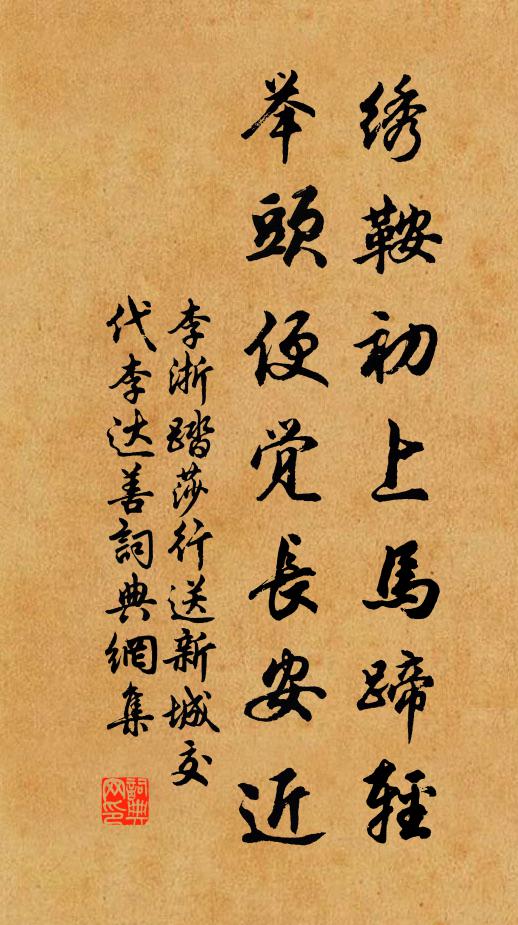 绣鞍初上馬蹄輕
举頭便觉長安近
李浙踏莎行送新城交
代李达善詞典網集
詞典网印